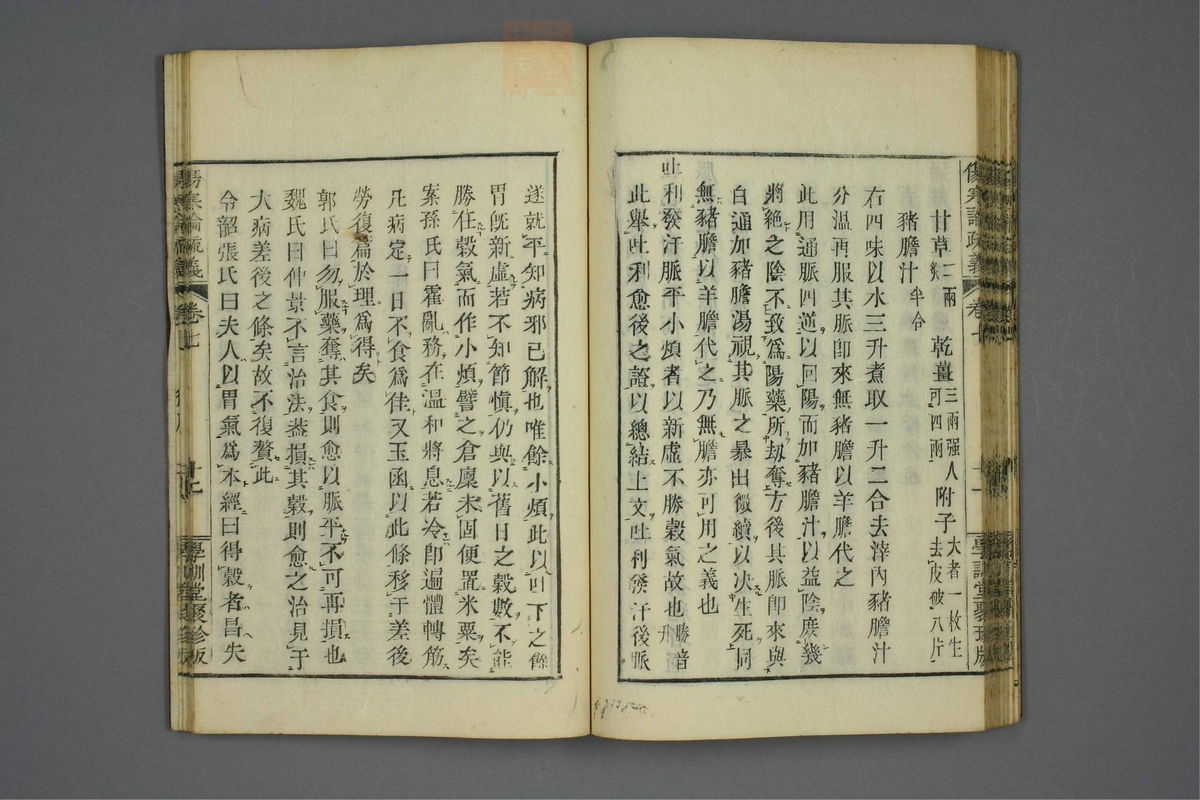 傷寒論疏義 卷七 學訓堂聚珍版
甘草二兩炙 乾薑三兩強人可四兩 附子大者一枚生去皮破八片
豬膽汁半合
右四味以水三升煮取一升二合去滓內豬膽汁
分溫再服其脈卽來無豬膽以羊膽代之
此用通脈四逆以回陽而加豬膽汁以益陰庶幾
將絕之陰不致爲陽藥所劫奪方後其脈卽來與
白通加豬膽湯視其脈之暴出微續以决生死同
無豬膽以羊膽代之乃無膽亦可用之義也
吐利發汗脈平小煩者以新虛不勝穀氣故也勝音升
此舉吐利愈後之證以總結上文吐利發汗後脈
遂就平知病邪已解也唯餘小煩此以吐下之餘
胃旣新虛若不知節愼仍與以舊日之穀數不能
勝任穀氣而作小煩譬之倉廩未固便置米粟矣
案孫氏曰霍亂務在溫和將息若冷卽遍體轉筋
凡病定一日不食爲佳又玉函以此條移于差後
勞復篇於理爲得矣
郭氏曰勿服藥奪其食則愈以脈平不可再損也
魏氏曰仲景不言治法蓋損其穀則愈之治見于
大病差後之條矣故不復贅此
令韶張氏曰夫人以胃氣爲本經曰得穀者昌失
傷寒論疏義 卷七 十七 學訓堂聚珍版